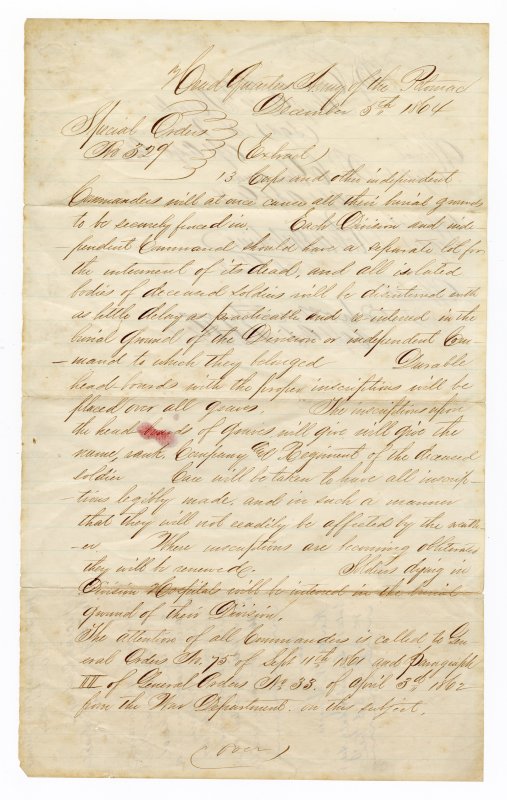 Head Quarters Army of the Potomac
December 5th, 1864
Special Orders
No 329
(Extract)
13 Corps and other independent
Commanders will at once cause all their burial grounds
to be securely fenced in. Each Division and inde-
-pendent Command should have a separate lot for
the interment of its dead, and all isolated
bodies of deceased soldiers will be disinterred with
as little delay as practicable and re intered in the
burial ground of the Division or independent Com-
-mand to which they belonged Durable
head-boards with the proper inscriptions will be
placed over all graves. The inscriptions upon
the head boards of graves will give will give the
name, rank, Company & Regiment of the deceased
soldier Care will be taken to have all inscrip-
-tions legibly made, and in such a manner
that they will not readily be affected by the weath-
-er Where inscriptions are becoming obliterated
they will be renewed. Soldiers dying in
Division Hospitals will be interred in the burial
ground of their Division.
The attention of all Commanders is called to Gen-
eral Orders No. 75 of Sept 11th 1861 and Paragraph
III of General Orders No 33. of April 3d, 1862
from the War Department. on this subject.
(over)